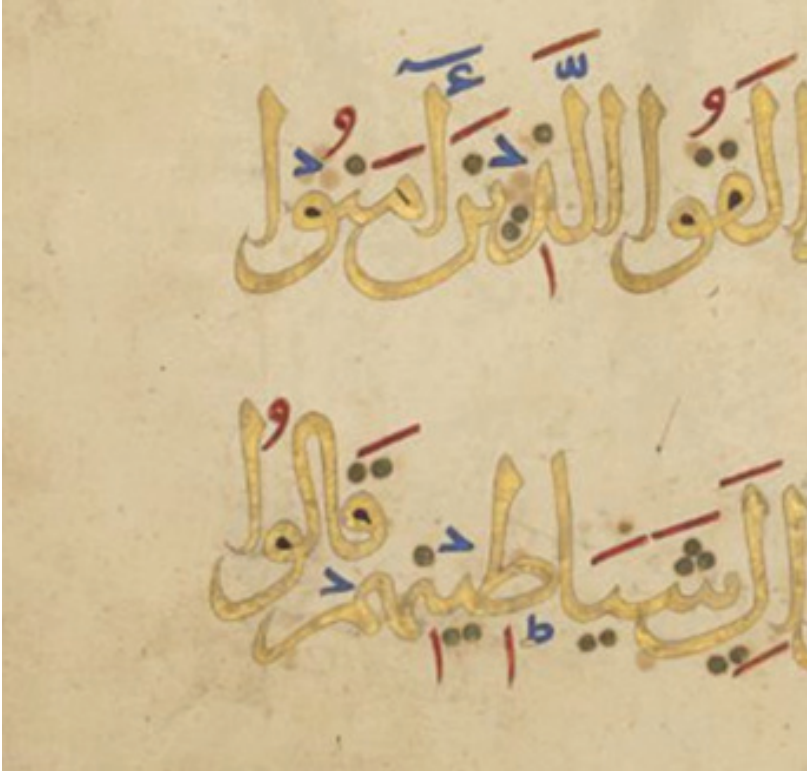 لَقُوا الَّذِينَ ءَامَنُوْا
اِلَى شَيَاطِيْنِهِمْ قَالُوا